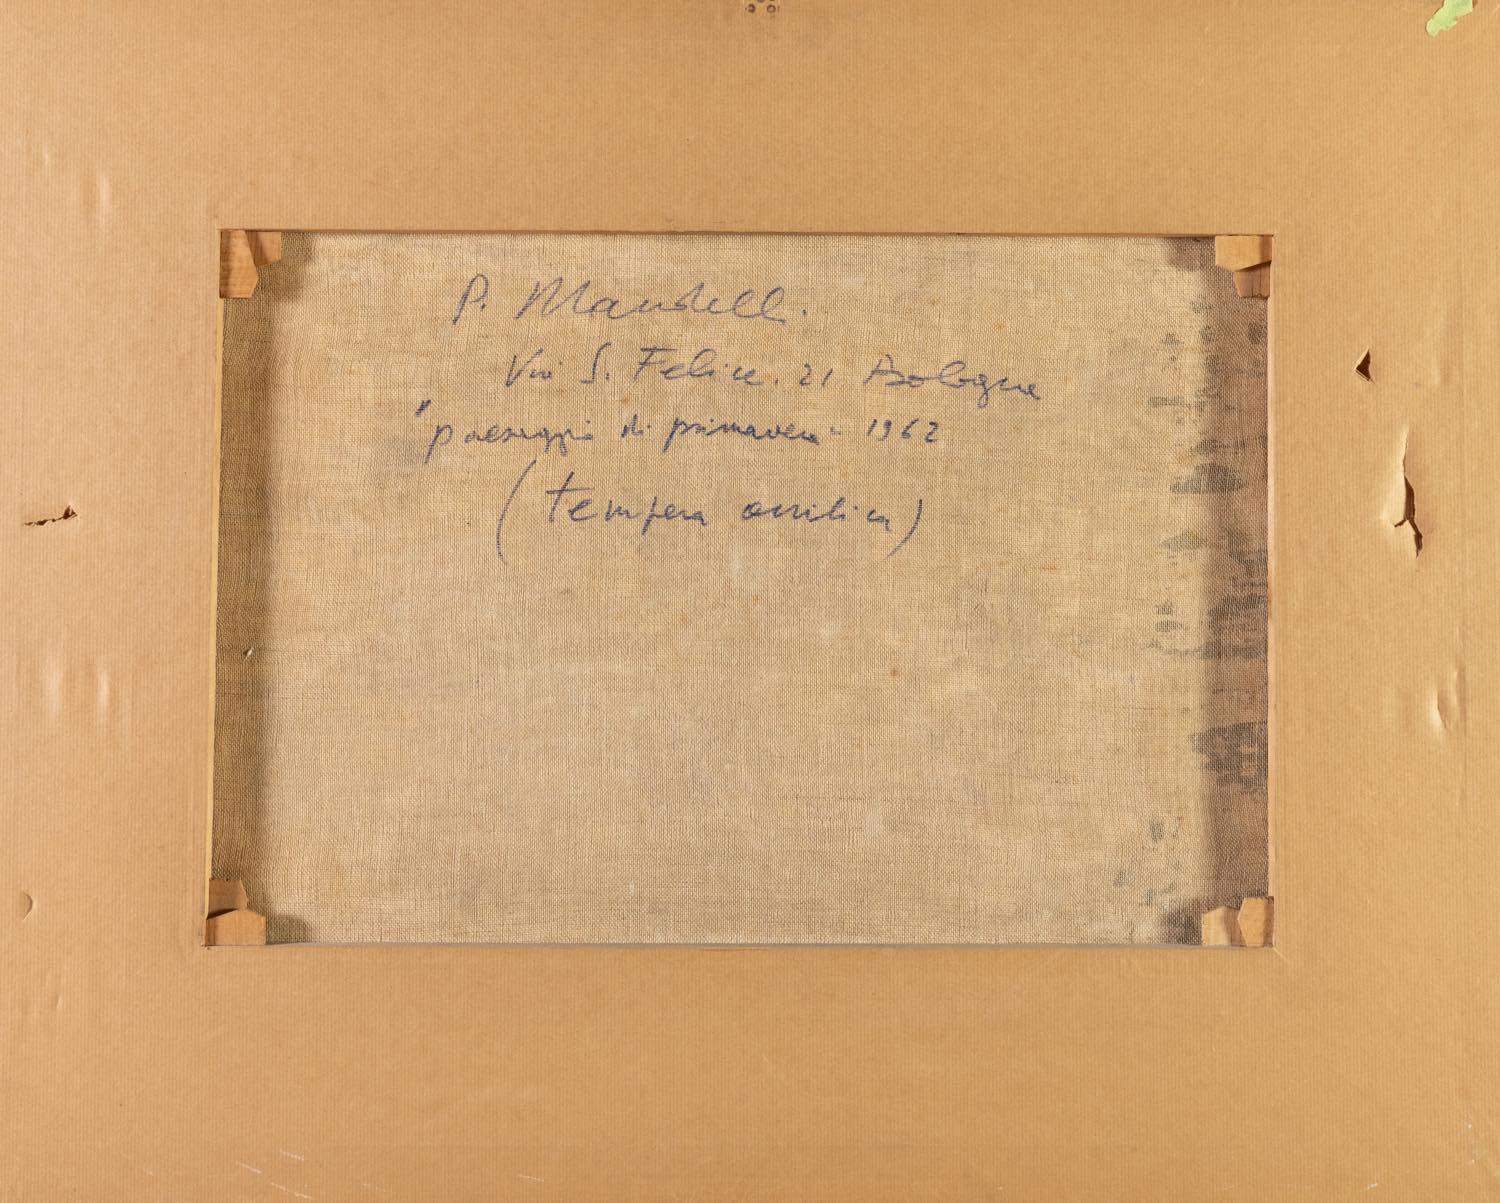 P. Mandelli
Via S. Felice. 21 Bologna
"paesaggio di primavera" 1962
(tempera acrilica)